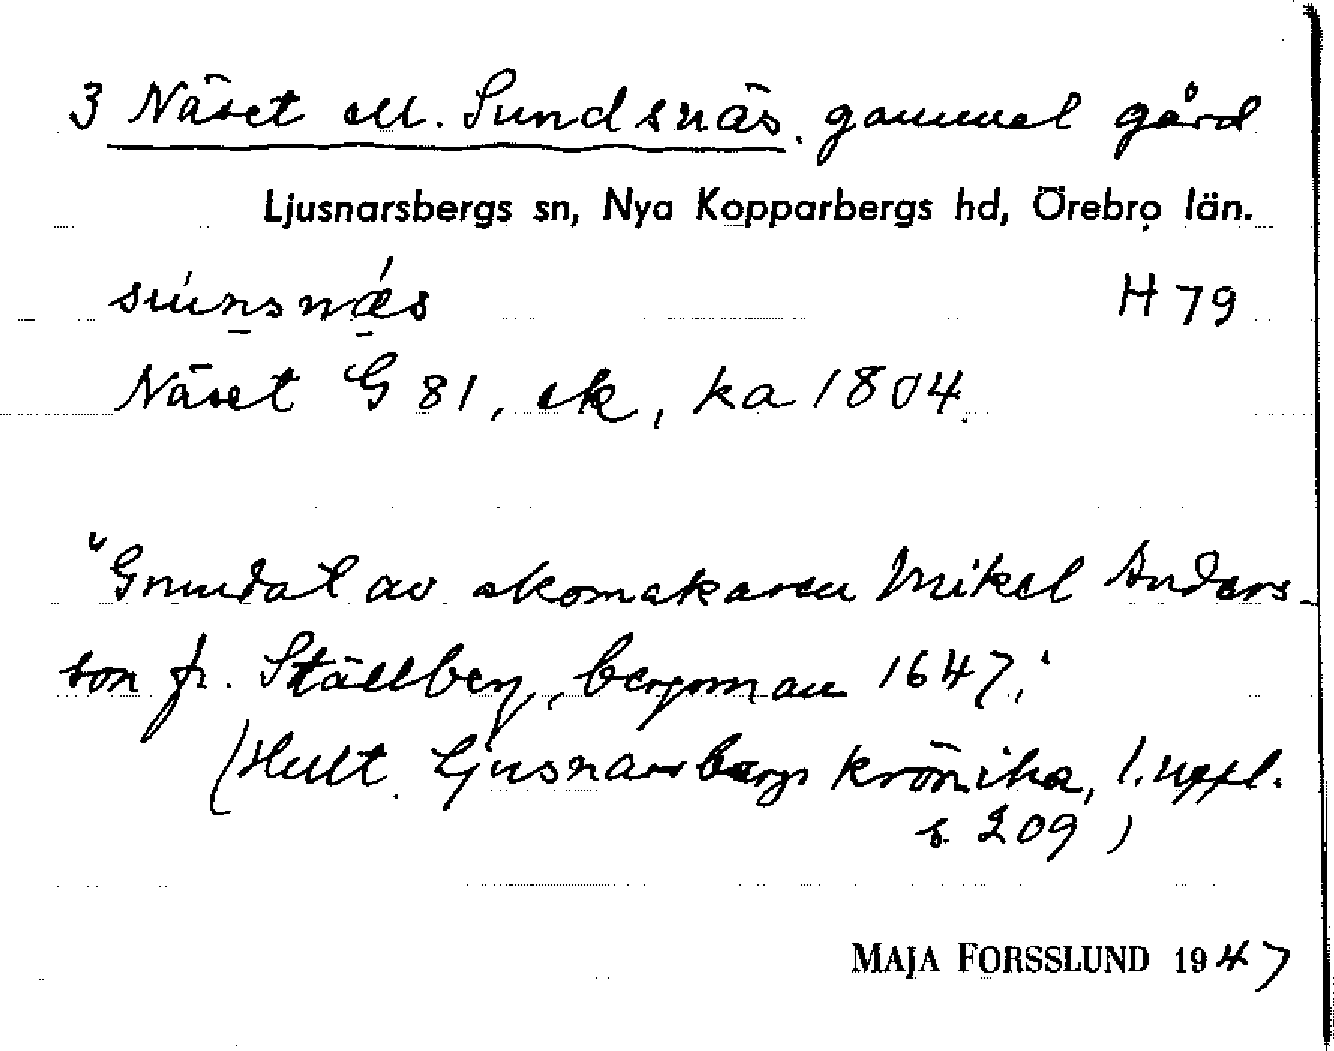 3 Näset ell. Sundsnäs. gammal gård
Ljusnarsbergs sn, Nya Kopparbergs hd, Örebro län.
sunsnäs H 79
Näset G 81, ek, ka 1804.
"Grundat av skomakaren Mikel Anders-
son fr. Ställberg, bergsman 1647."
(Hult. Ljusnarsbergs krönika, 1. uppl.
s. 209)
MAJA FORSSLUND 1947